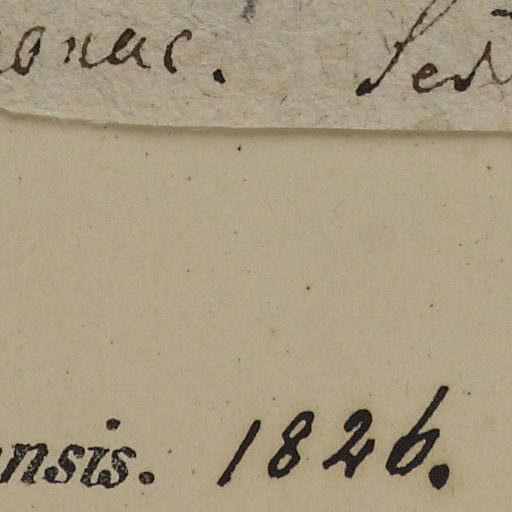 onac. Sed
nsis. 1826.